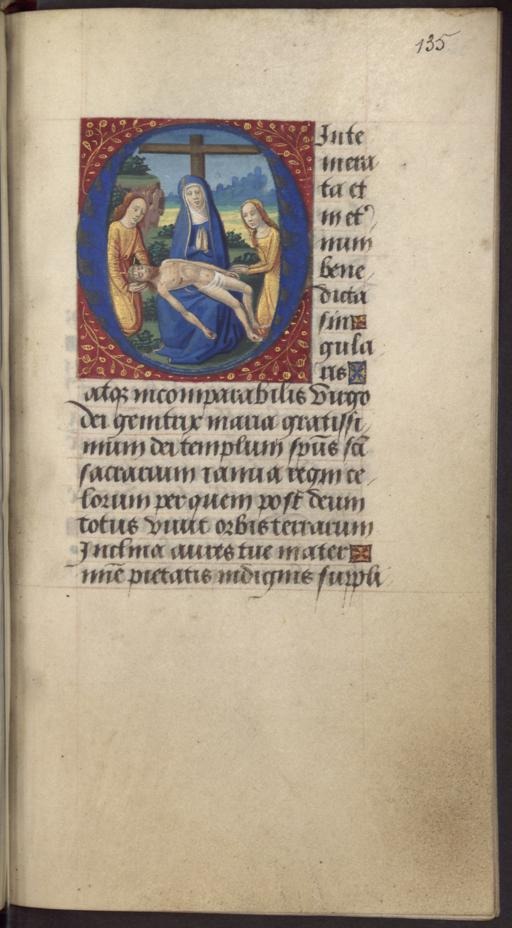 135
Inte
mera
ta et
in et
num
bene
dicta
sin
gula
ris
atq; incomparabilis Virgo
dei genitrix maria gratissi
mum dei templum spūs sc̄i
sacrarium ianua regni ce
lorum per quem post deum
totus viuit orbis terrarum
Inclina aures tue mater
mē pietatis indignis suppli